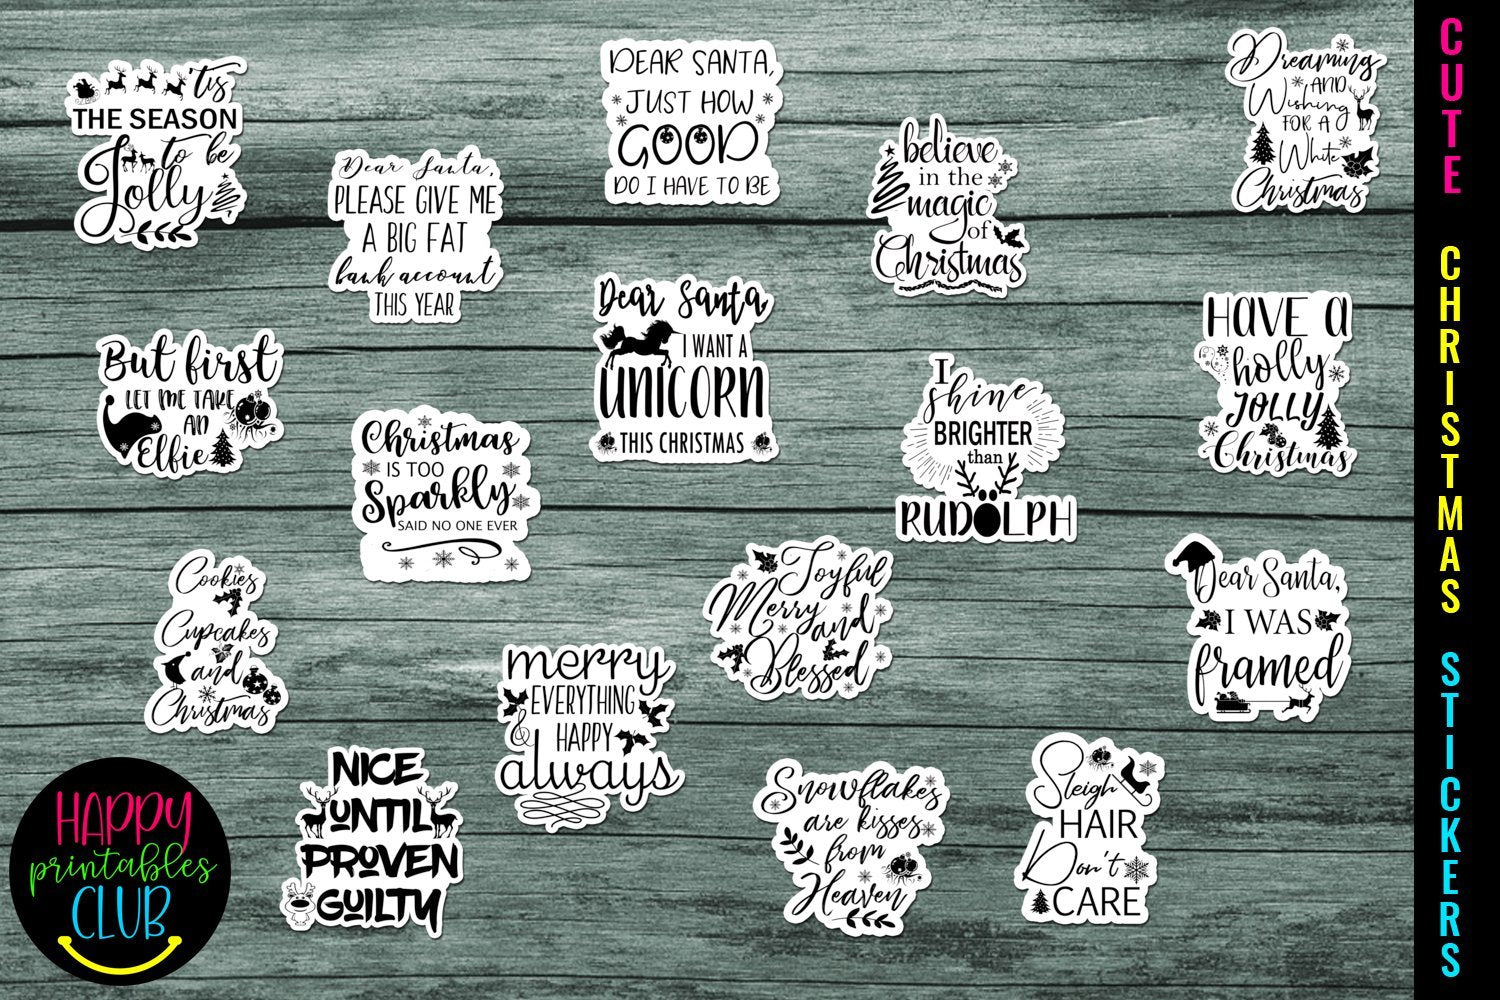 'tis
THE SEASON
to be
Jolly
Dear Santa,
PLEASE GIVE ME
A BIG FAT
bank account
THIS YEAR
DEAR SANTA,
JUST HOW
GOOD
DO I HAVE TO BE
believe
in the
magic
of
Christmas
Dreaming
AND
Wishing
FOR A
White
Christmas
But first
LET ME TAKE
AN
Elfie
Christmas
IS TOO
Sparkly
SAID NO ONE EVER
Dear Santa,
I WANT A
UNICORN
THIS CHRISTMAS
I
shine
BRIGHTER
than
RUDOLPH
HAVE A
holly
JOLLY
Christmas
Cookies
Cupcakes
and
Christmas
merry
EVERYTHING
& HAPPY
always
Joyful
Merry
and
Blessed
Dear Santa,
I WAS
framed
NICE
UNTIL
PROVEN
GUILTY
Snowflakes
are kisses
from
Heaven
Sleigh
HAIR
Don't
CARE
HAPPY
printables
CLUB
CUTE CHRISTMAS STICKERS